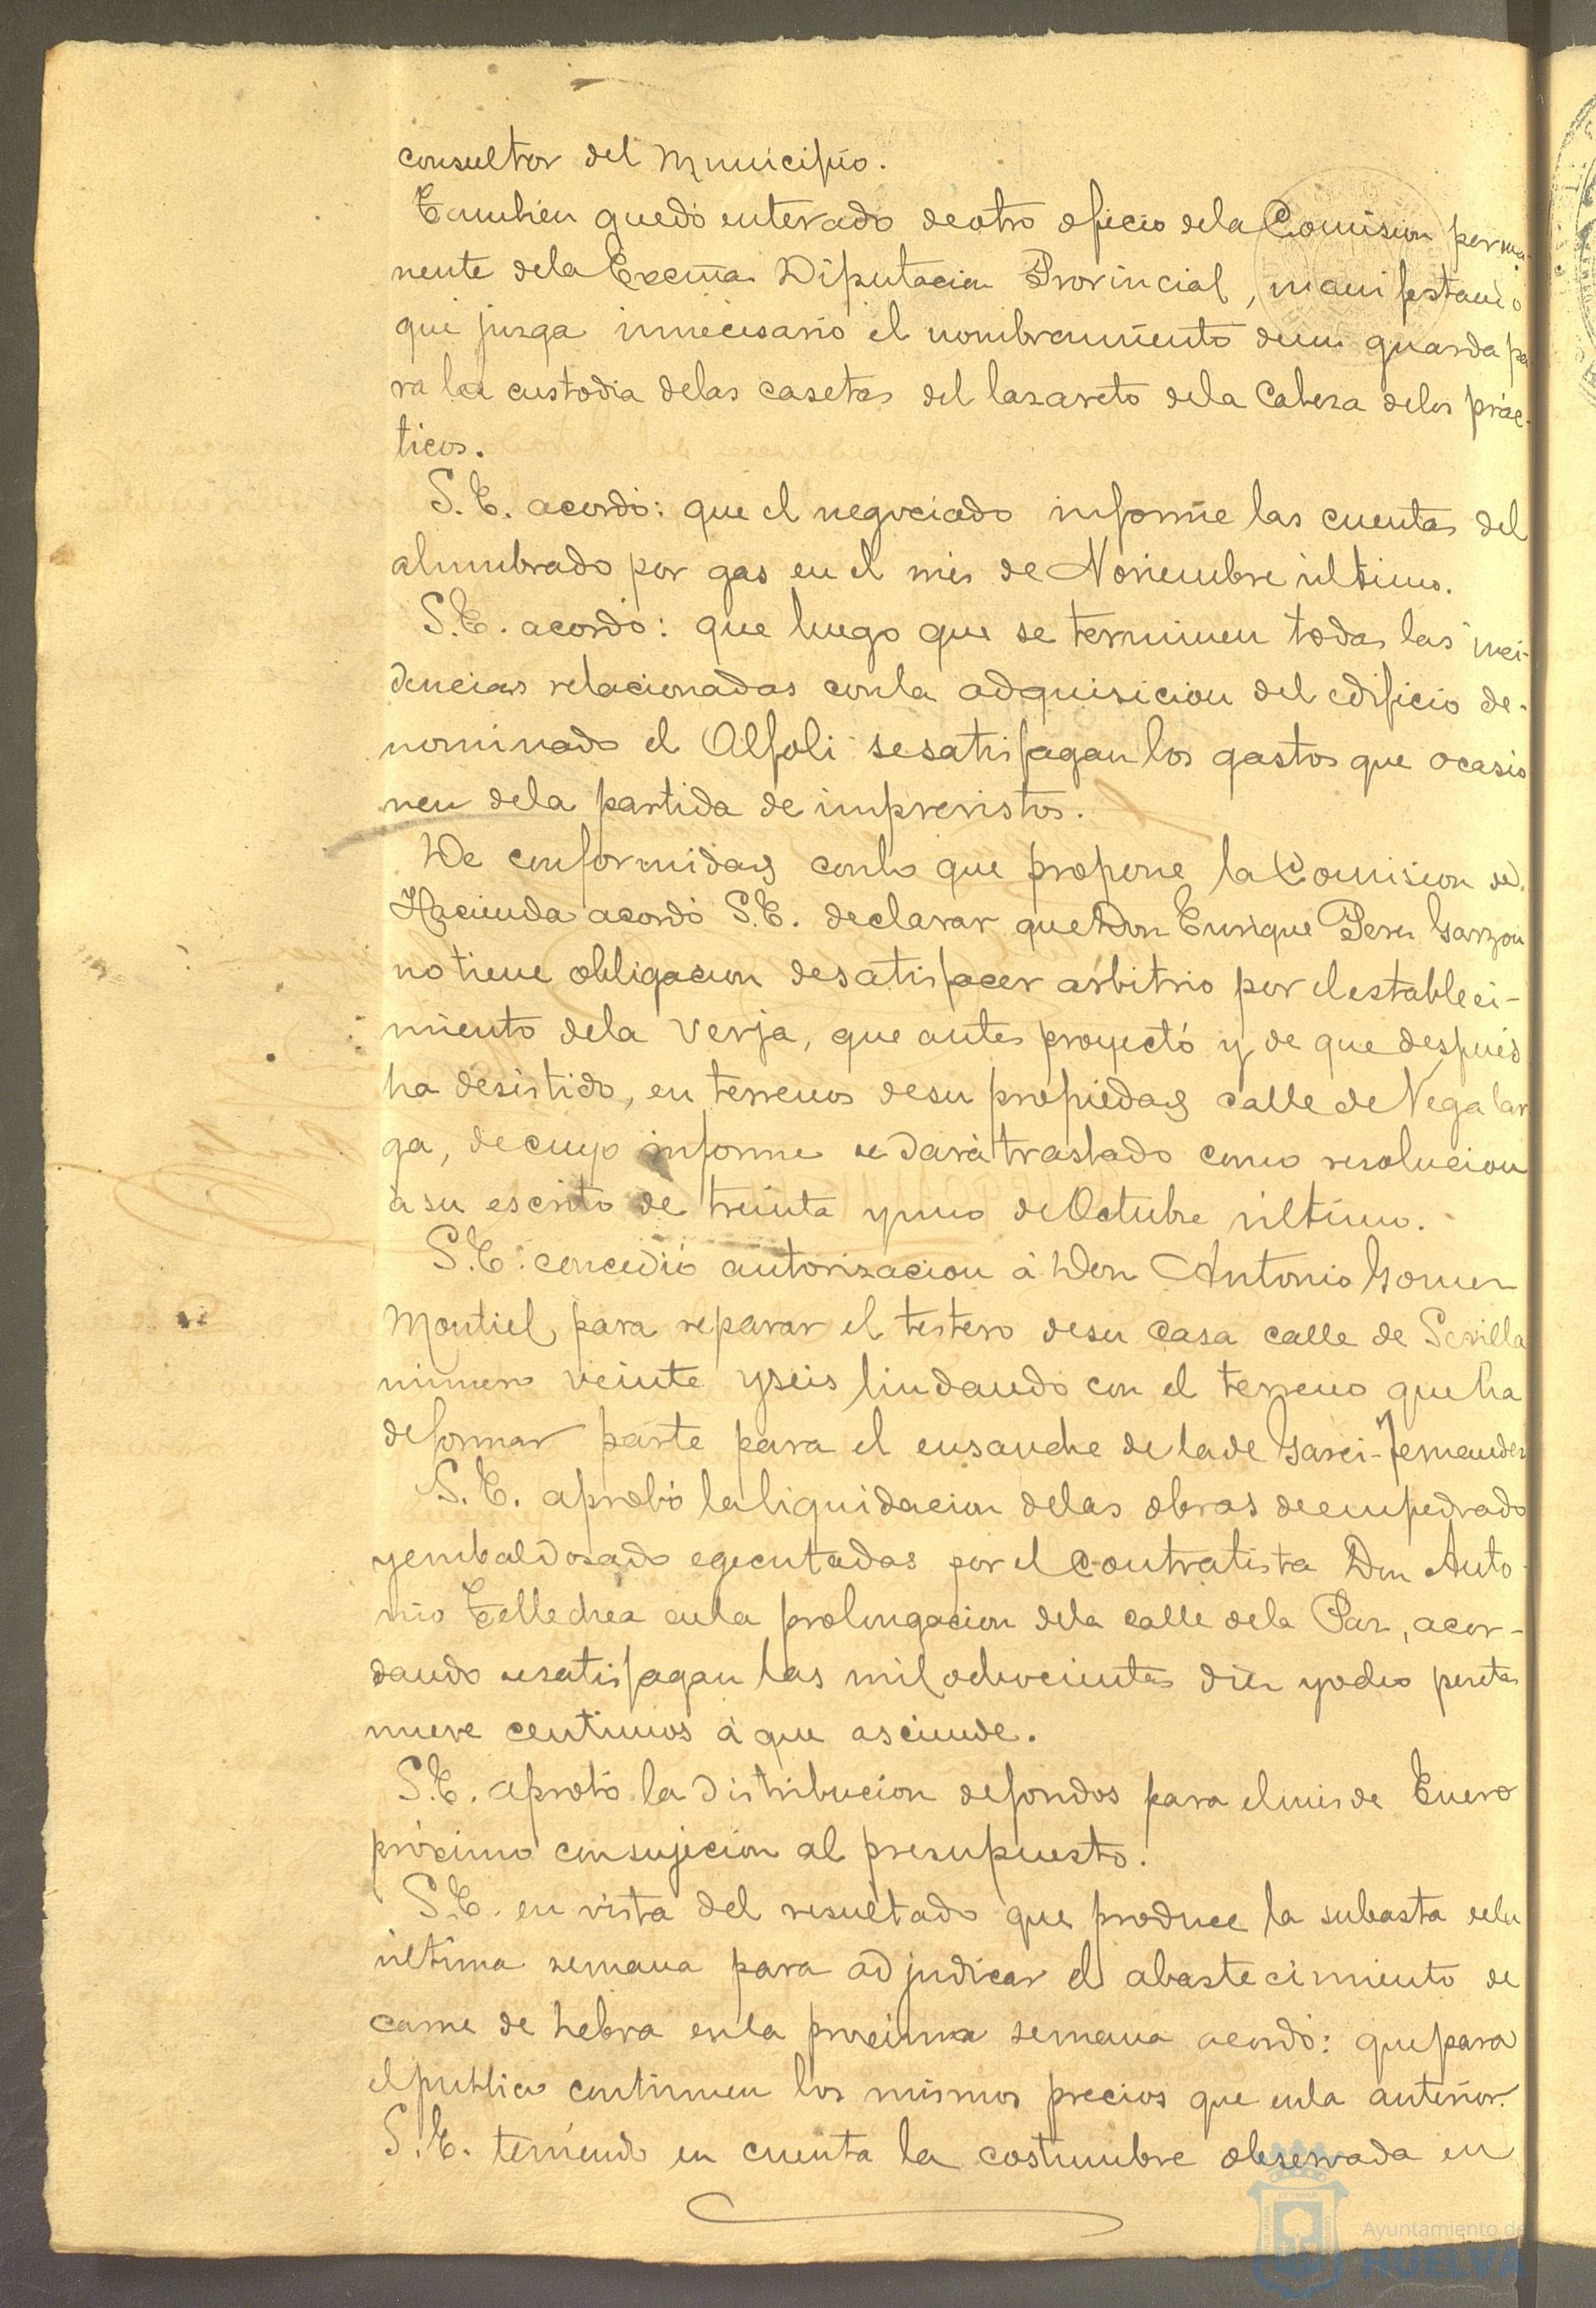 consultor del Municipio.
Tambien quedó enterado de otro oficio de la Comision perma-
nente de la Excma Diputacion Provincial, manifestando
que juzga innecesario el nombramiento de un guarda pa
ra la custodia de las casetas del lazareto de la Cabeza de los prác-
ticos.
S. E. acordó: que el negociado informe las cuentas del
alumbrado por gas en el mes de Noviembre último.
S. E. acordó: que luego que se terminen todas las inci-
dencias relacionadas con la adquisicion del edificio de-
nominado el Alfoli se satisfagan los gastos que ocasio
nen de la partida de imprevistos.
De conformidad con lo que propone la Comision de
Hacienda acordó S. E. declarar que Don Enrique Perez Garzon
no tiene obligacion de satisfacer arbitrio por el estableci-
miento de la verja, que antes proyectó y de que despues
ha desistido, en terrenos de su propiedad calle de Vega lar
ga, de cuyo informe se dará traslado como resolucion
á su escrito de treinta y uno de Octubre último.
S. E. concedió autorizacion á Don Antonio Gomez
Montiel para reparar el testero de su casa calle de Sevilla
número veinte y seis lindando con el terreno que ha
de formar parte para el ensanche de la de Garci-Fernandez
S. E. aprobó la liquidacion de las obras de empedrado
y embaldosado egecutadas por el contratista Don Anto-
nio Tellechea en la prolongacion de la calle de la Paz, acor-
dando se satisfagan las mil ochocientas diez y ocho pesetas
nueve centimos á que asciende.
S. E. aprobó la distribucion de fondos para el mes de Enero
próximo con sujecion al presupuesto.
S. E. en vista del resultado que produce la subasta de la
última semana para adjudicar el abastecimiento de
carne de hebra en la proxima semana acordó: que para
el publico continuen los mismos precios que en la anterior.
S. E. teniendo en cuenta la costumbre observada en
Ayuntamiento de
HUELVA